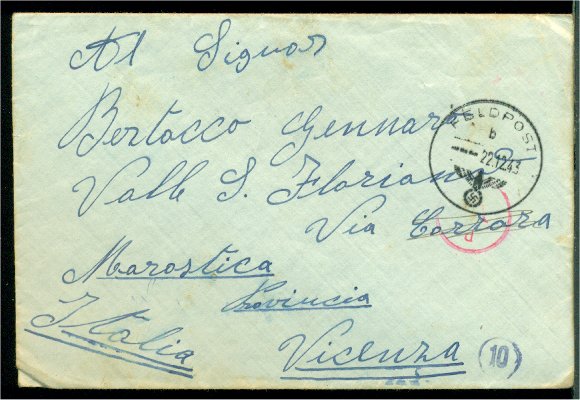 Al Signor
Bertacco Gennaro
Valle S. Floriano
Via Carrara
Marostica
Provincia
Vicenza
Italia
FELDPOST
b
22.12.43
10